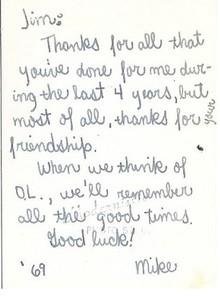 Jim:
Thanks for all that
you've done for me dur-
ing the last 4 years, but
most of all, thanks for your
friendship.
When we think of
O.L., we'll remember
all the good times.
Good luck!
'69 Mike